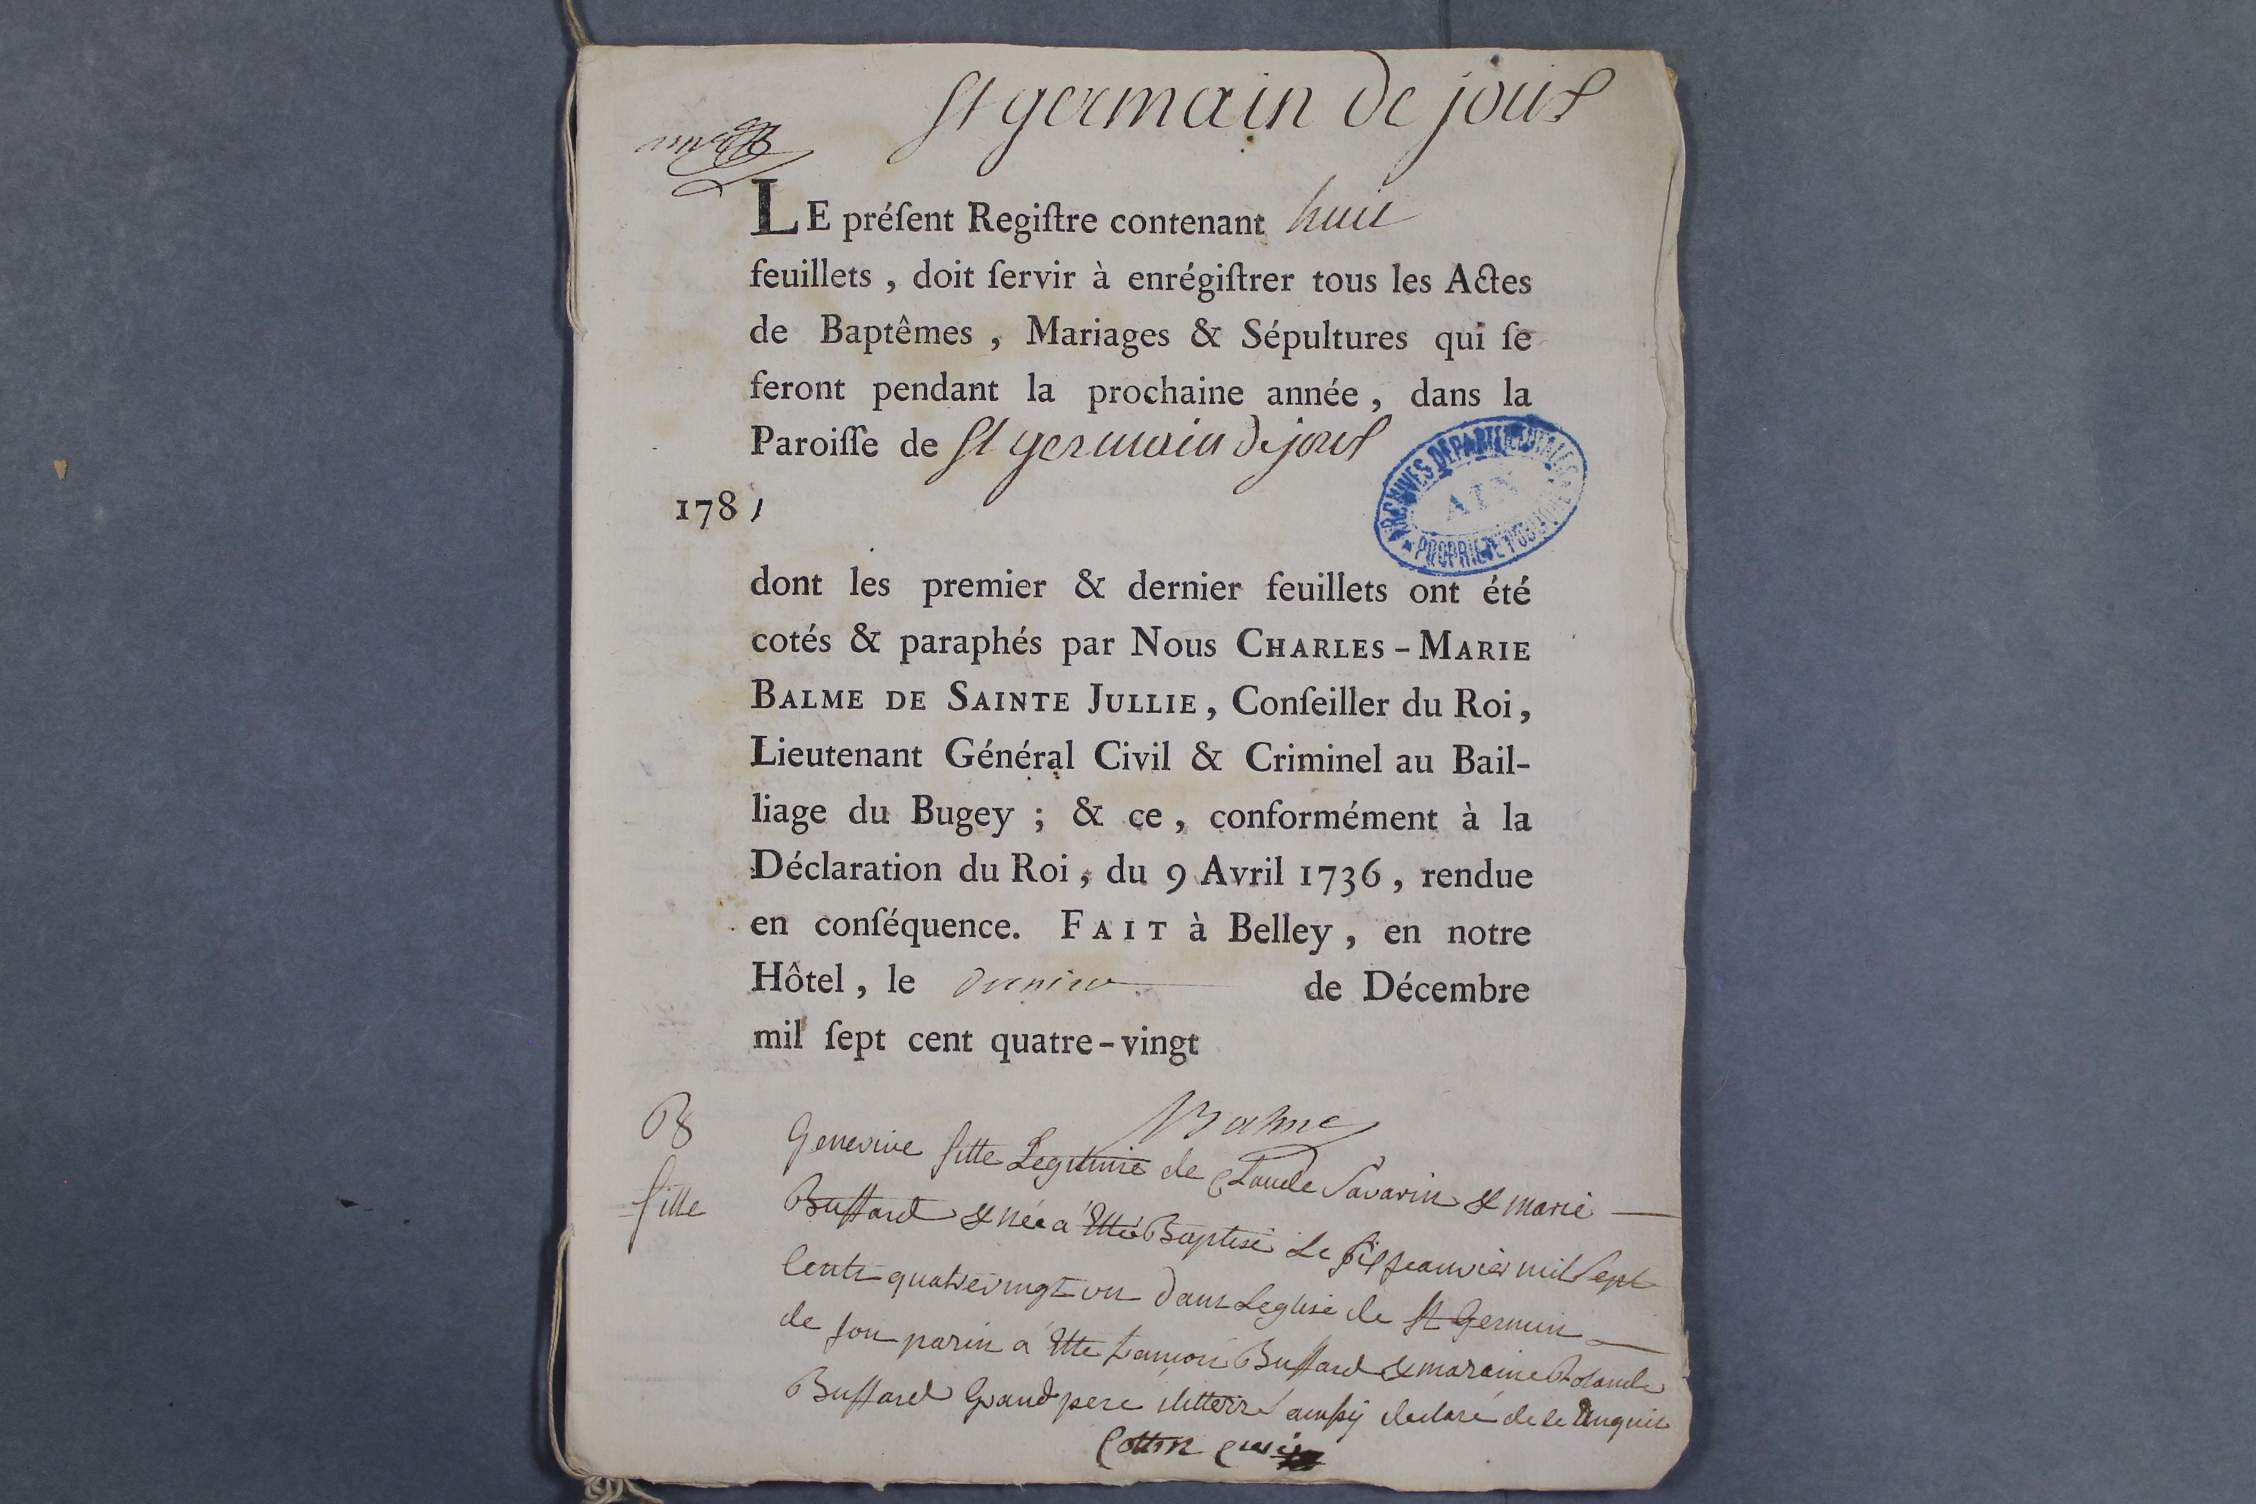 St germain de joux
LE préſent Regiſtre contenant huit
feuillets, doit ſervir à enrégiſtrer tous les Actes
de Baptêmes, Mariages & Sépultures qui ſe
feront pendant la prochaine année, dans la
Paroiſſe de St germain de joux
ARCHIVES DEPARTEMENTALES
AIN
PROPRIETE PUBLIQUE
1781
dont les premier & dernier feuillets ont été
cotés & paraphés par Nous CHARLES-MARIE
BALME DE SAINTE JULLIE, Conſeiller du Roi,
Lieutenant Général Civil & Criminel au Bail-
liage du Bugey; & ce, conformément à la
Déclaration du Roi, du 9 Avril 1736, rendue
en conſéquence. FAIT à Belley, en notre
Hôtel, le dernier de Décembre
mil ſept cent quatre-vingt
Balme
fille
Genevive fille Legitime de Claude Savarin & marie
Buffard & née a Etté Baptisé le janvier mil Sept
Cents quatrevingt un dans Leglise de St Germain
de Son parin a Etté Buffard & maraine
Buffard Grand pere illitteré aussy declaré de ce Enquis